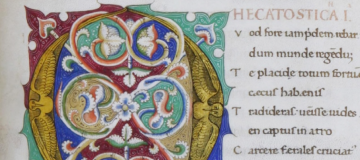 HECATOSTICA I.
V od fore tampdem rebar
dum munde regēdu;
T e placide totum fortun
cæcus habenis
T radideras: uēisse uicles
en captus in atro
C arcere ferales cruciat